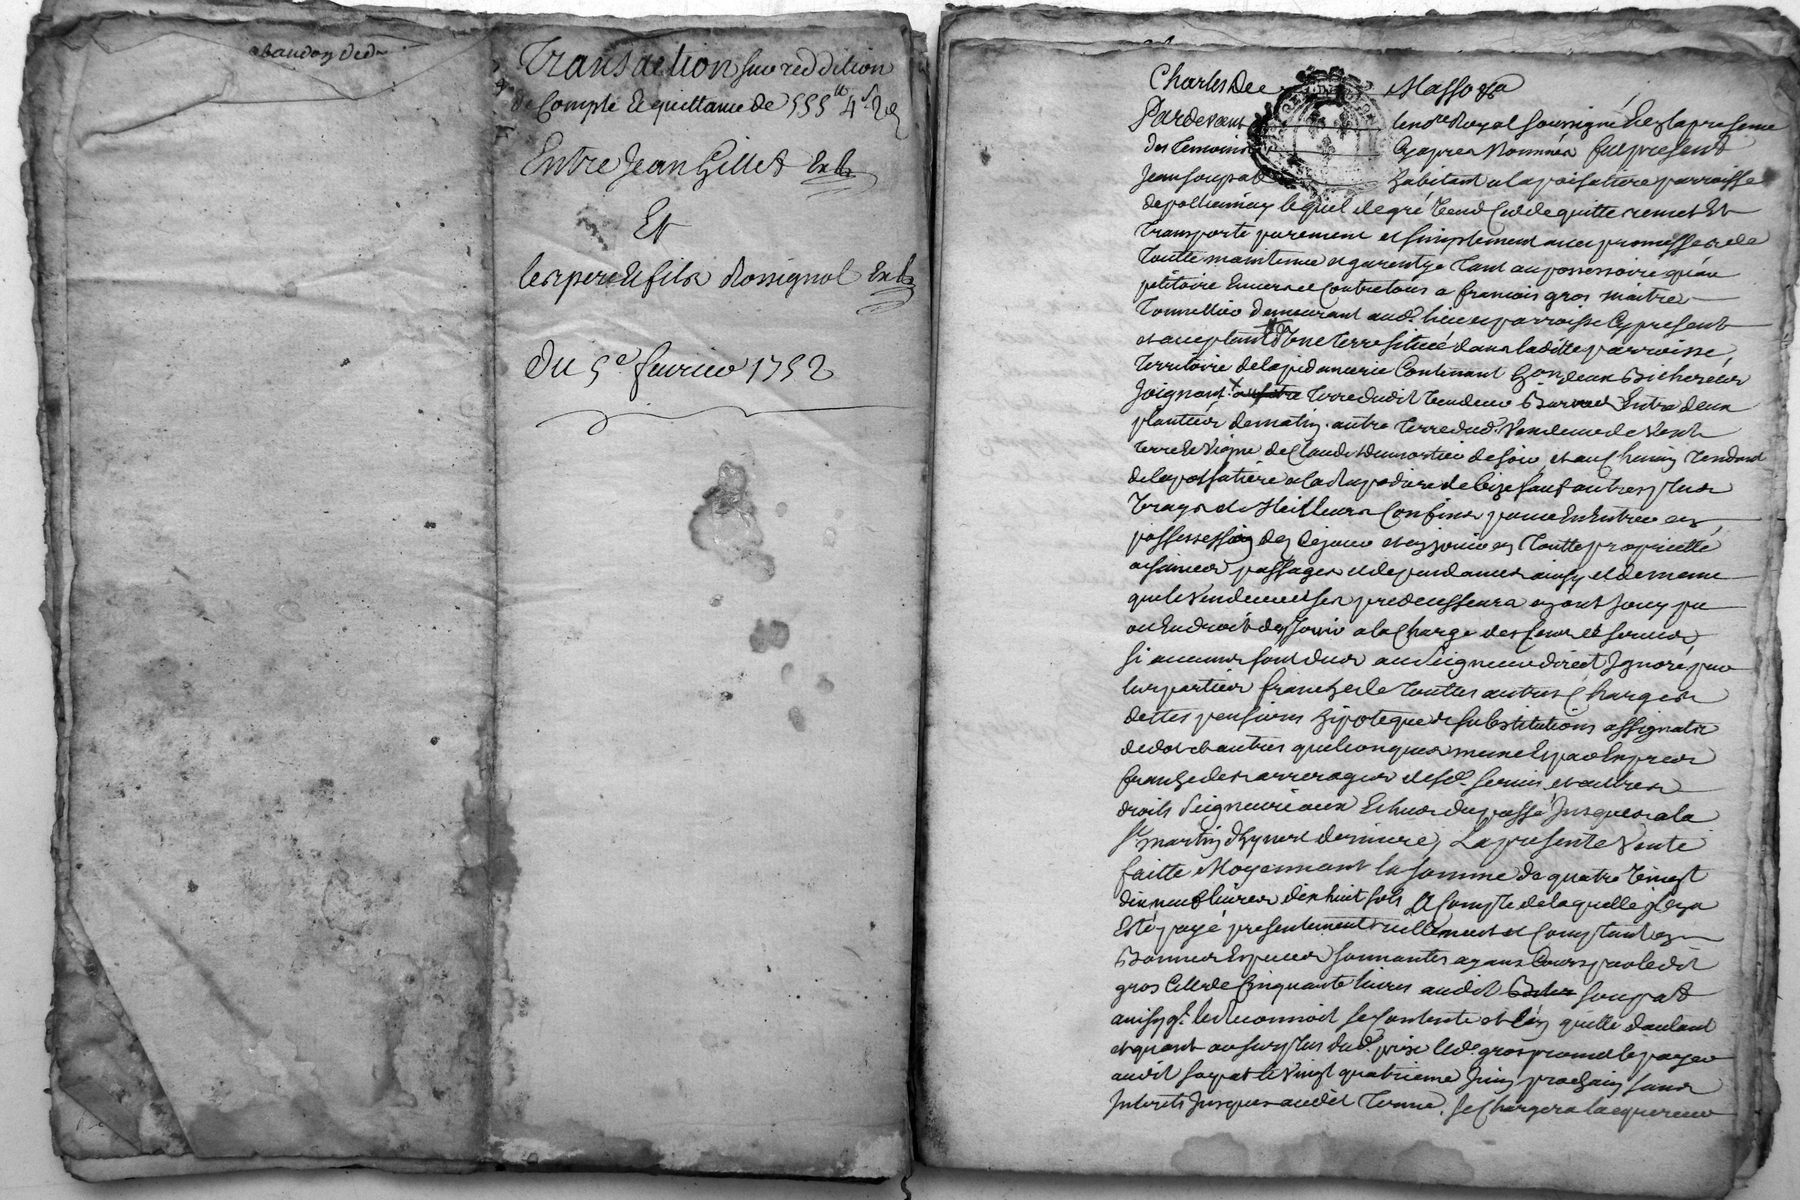 abandon de d
Transaction sur reddition
de Compte et quittance de 555 ᵗᵗ 4 ˢ 2 d
Entre Jean Gillet
Et
les pere et fils Rossignol
Du 5ᵉ fevrier 1752
Charles De Masso
Pardevant le noʳᵉ Royal soussigné et en la presence
des temoins cy apres nommés fut present
Jean soupat habitant a la poisatiere parroisse
de pollionnay lequel de gré vend cede quitte remet et
transporte purement et simplement avec promesse de
toutte maintenue et garentye tant au possessoire qu'au
petitoire envers et contre tous a francois gros maitre
tonnellier demeurant aud. lieu et parroisse cy present
et acceptant une terre située dans laditte parroisse,
territoire de la contenant deux bicherées
joignant terre dudit vendeur entre deux
de matin. autre terre dud. vendeur de vent
terre et vigne de Claude de soir, et au chemin tendant
de la poisatiere a la de bize sauf autres plus
vrays et meilleurs confins pour en entrer en
possession des et en jouir en toutte proprietté
aisances passages et dependances ainsy et de meme
que le vendeur et ses predecesseurs en ont jouy pu
ou eu droit de jouir a la charge des cens et servis
si aucuns sont dus au seigneur direct ignoré par
les parties franche de touttes autres charges
dettes pensions hipoteques substitutions
de dot et autres quelconques meme
franche des arrerages desd. servis et autres
droits seigneuriaux echus du passé jusques a la
Sᵗ martin d'hyvert derniere, La presente vente
faitte moyennant la somme de quatre vingt
dix neuf livres dix huit sols a compte de laquelle il en a
eté payé presentement reellement et comptant en
bonnes especes sonnantes ayant cours par ledit
gros celle de cinquante livres audit soupat
ainsy qᵉ le reconnoit se contente et l'en quitte d'autant
et quant au surplus dud. prix led. gros promet le payer
audit sopat le vingt quatrieme juin prochain sans
interets jusques audit terme. se chargera l'acquereur